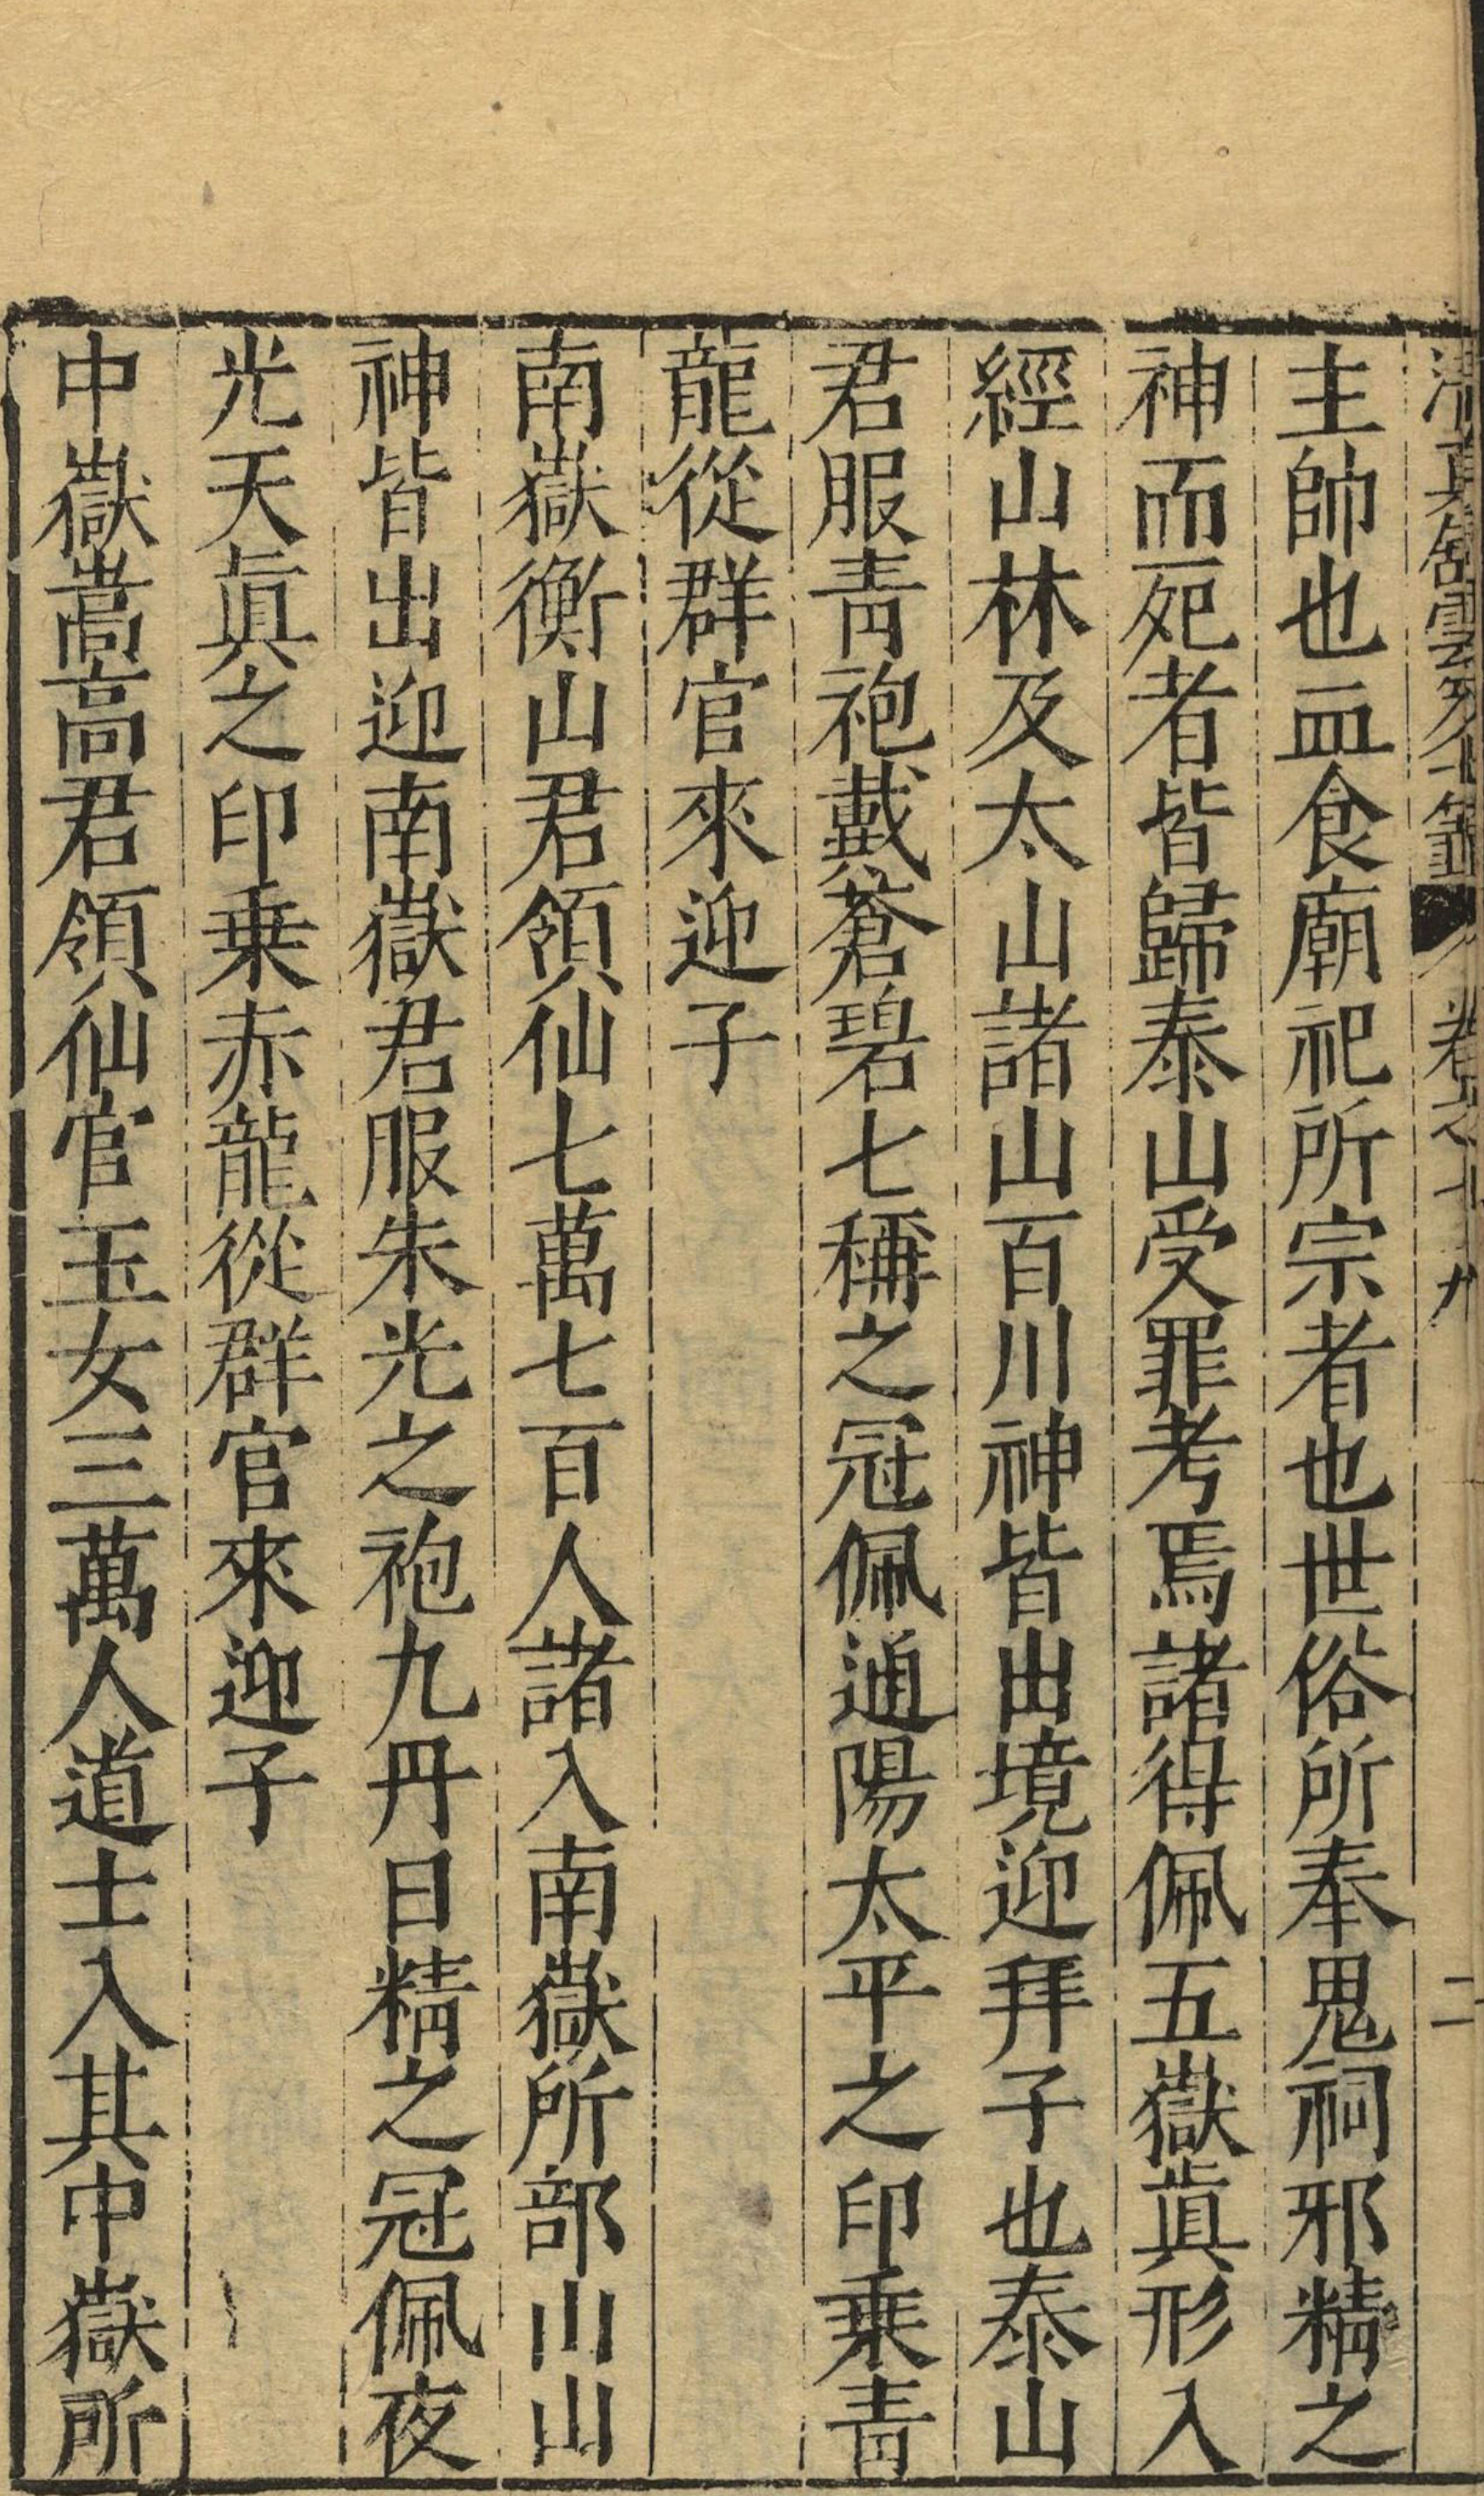 清真館雲笈七籤 卷之七十九 二
主帥也血食廟祀所宗者也世俗所奉鬼祠邪精之
神而死者皆歸泰山受罪考焉諸得佩五嶽眞形入
經山林及太山諸山百川神皆出境迎拜子也泰山
君服青袍戴蒼碧七稱之冠佩通陽太平之印乗青
龍從群官來迎子
南嶽衡山君領仙七萬七百人諸入南嶽所部山川
神皆出迎南嶽君服朱光之袍九丹日精之冠佩夜
光天眞之印乗赤龍從群官來迎子
中嶽嵩高君領仙官玉女三萬人道士入其中嶽所